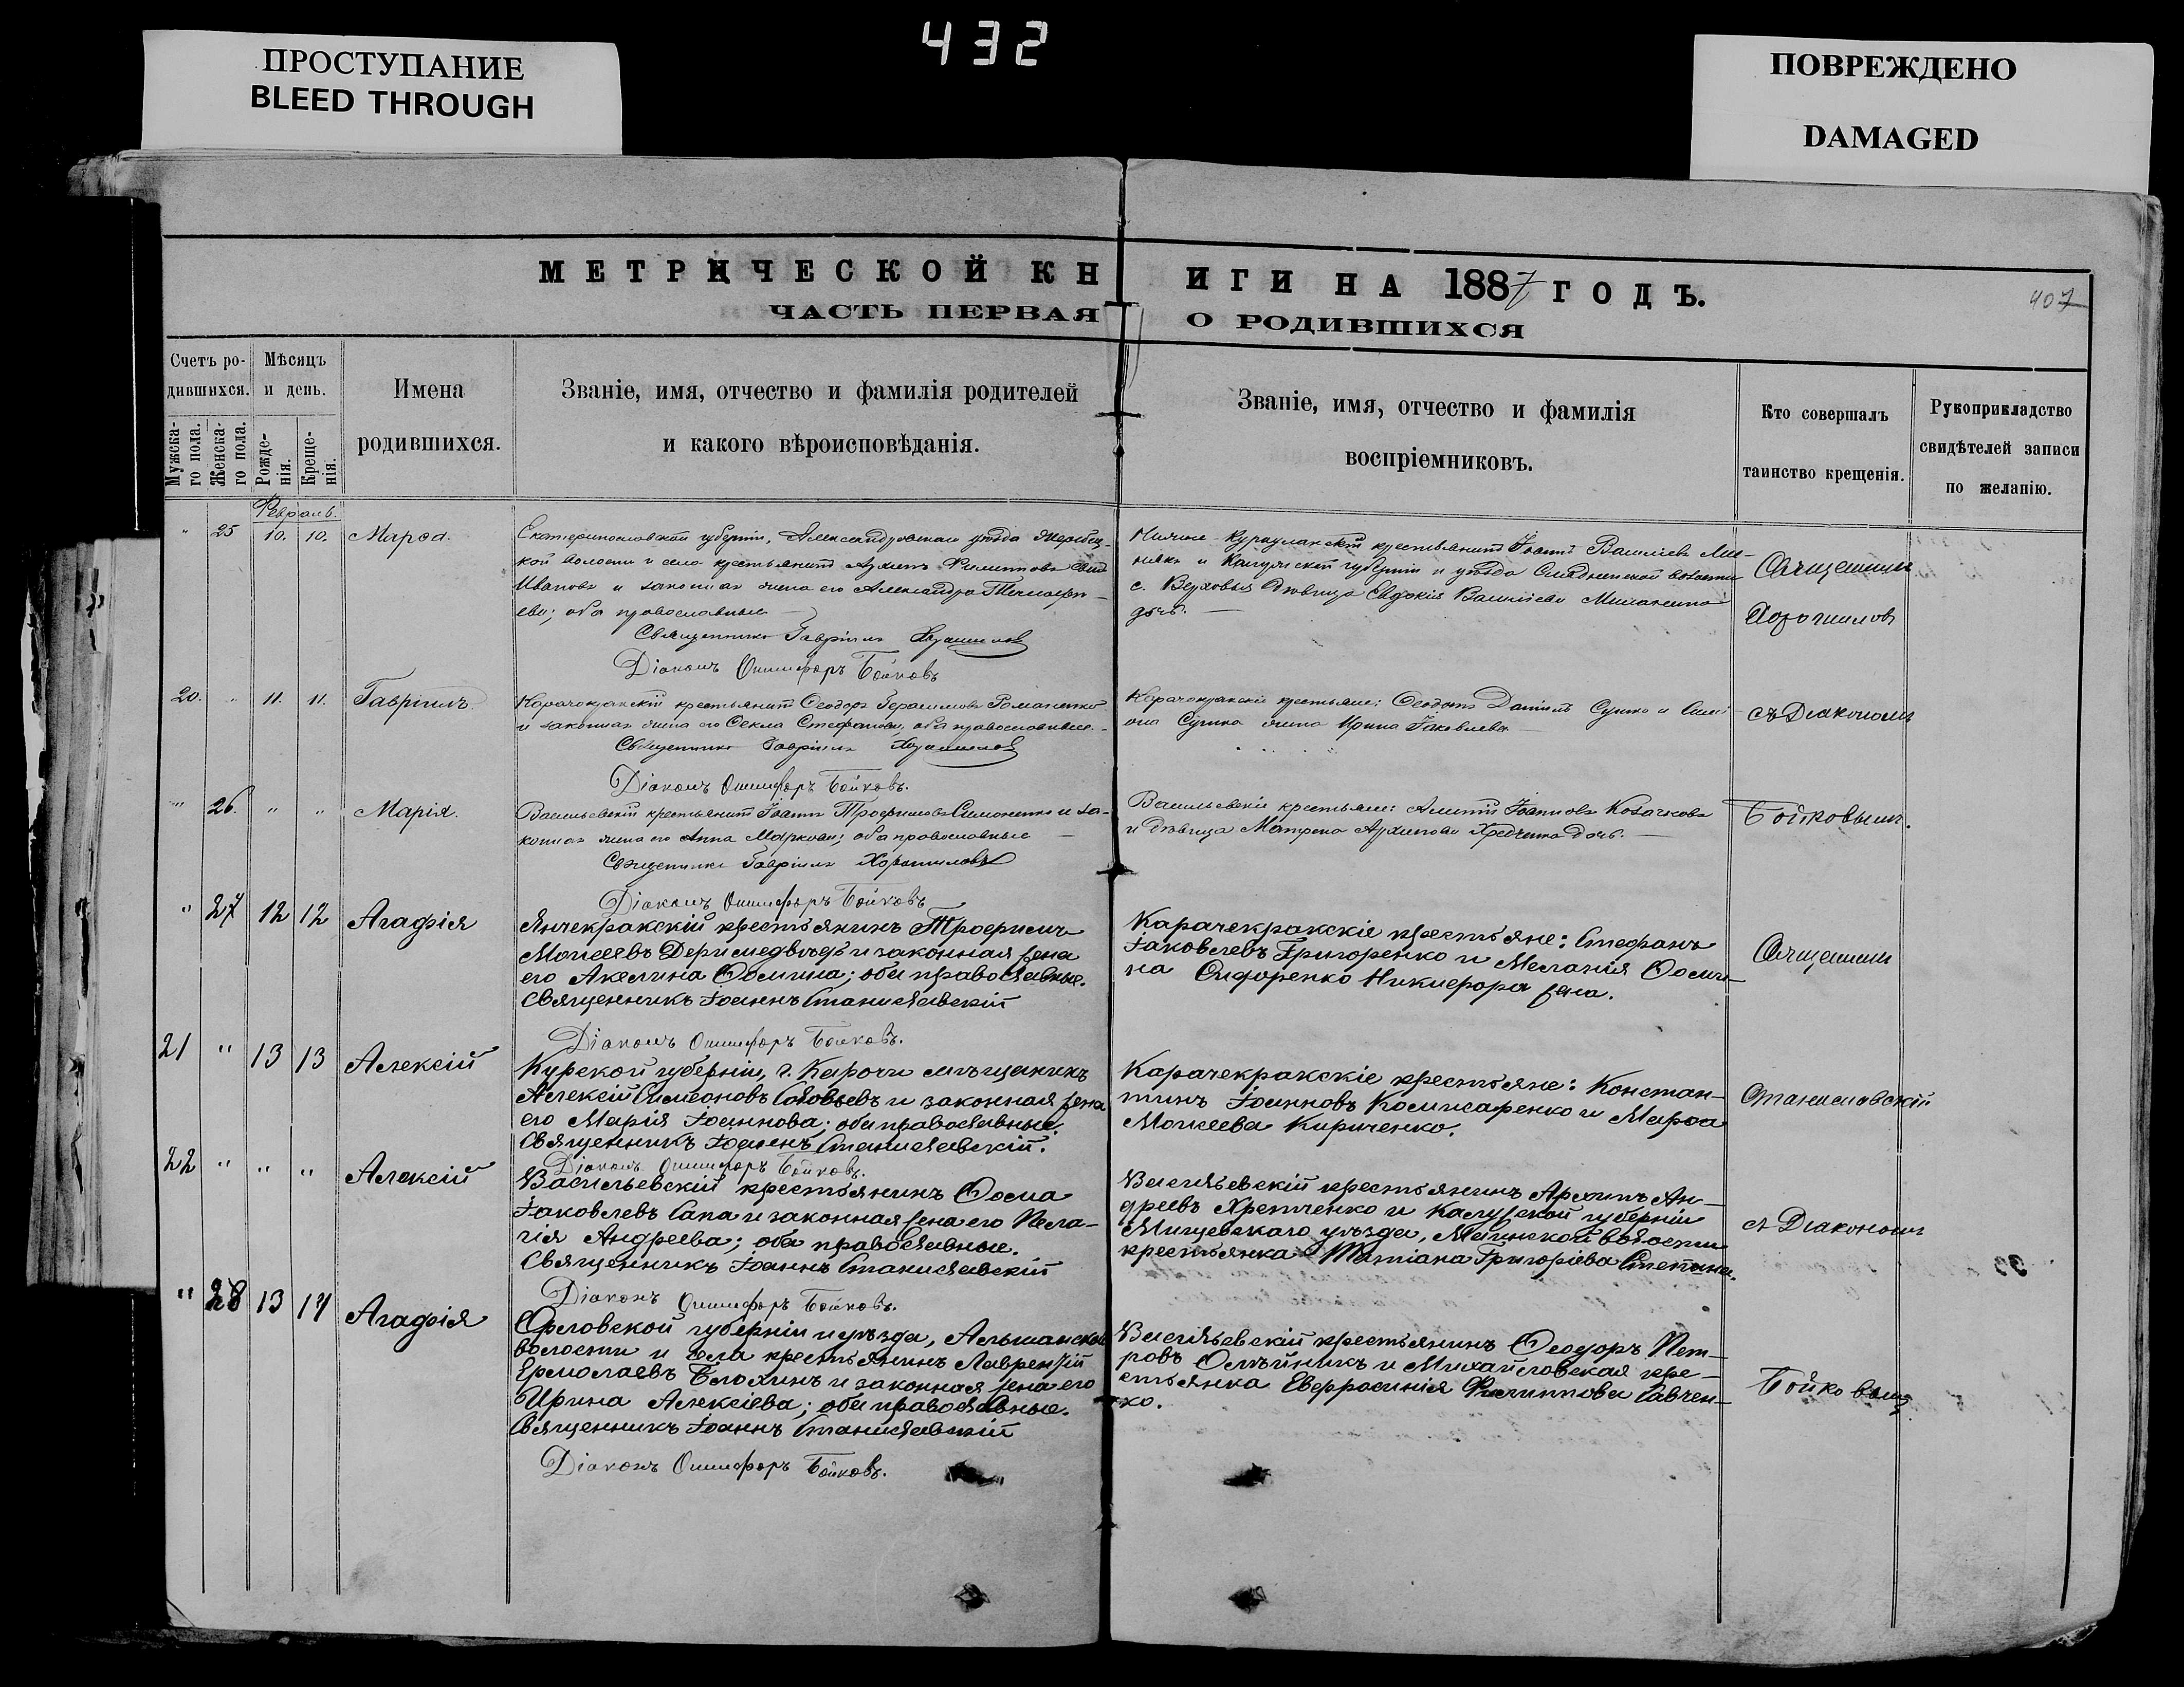 432
ПРОСТУПАНИЕ
BLEED THROUGH
ПОВРЕЖДЕНО
DAMAGED
МЕТРИЧЕСКОЙ КНИГИ НА 1887 ГОДЪ.
ЧАСТЬ ПЕРВАЯ О РОДИВШИХСЯ
407
Счетъ ро-
дившихся.
Мѣсяцъ
и день.
Мужска-
го пола.
Женска-
го пола.
Рожде-
нія.
Креще-
нія.
Имена
родившихся.
Званіе, имя, отчество и фамилія родителей
и какого вѣроисповѣданія.
Званіе, имя, отчество и фамилія
воспріемниковъ.
Кто совершалъ
таинство крещенія.
Рукоприкладство
свидѣтелей записи
по желанію.
Февраль.
" 25 10. 10. Марѳа.
Екатеринославской губерніи, Александровскаго уѣзда Жеребец-
кой волости и села крестьянинъ Филиповъ
Ивановъ и законная жена его Александра
ева; оба православные
Священникъ Гавріилъ Хорошиловъ
Діаконъ Онисифоръ Бойковъ
крестьянинъ Іоаннъ Васильевъ
и Калужской губерніи и уѣзда волости
с. дѣвица Евдокія Васильева
дочь.
Священникъ
Хорошиловъ
20. " 11. 11. Гавріилъ.
Карачокракскій крестьянинъ Ѳеодоръ Герасимовъ Романенко
и законная жена его Ѳекла Стефанова, оба православные.
Священникъ Гавріилъ Хорошиловъ
Діаконъ Онисифоръ Бойковъ.
Карачокракскіе крестьяне: Даніилъ Сушко и
она Сушко жена Ирина Іаковлева
съ Діакономъ
" 26. " " Марія.
Васильевскій крестьянинъ Іоаннъ Трофимовъ Симоненко и за-
конная жена его Анна Маркова; оба православные
Священникъ Гавріилъ Хорошиловъ
Діаконъ Онисифоръ Бойковъ
Васильевскіе крестьяне: Іоанновъ Козачковъ
и дѣвица Матрона Архипова дочь.
Бойковымъ.
" 27 12 12 Агафія
Янчекракскій крестьянинъ Трофимъ
Моисеевъ Деримедвѣдь и законная жена
его Акелина Ѳомина; оба православные.
Священникъ Іоаннъ Станиславскій
Діаконъ Онисифоръ Бойковъ.
Карачекракскіе крестьяне: Стефанъ
Іаковлевъ Григоренко и Меланія Ѳоми-
на Сидоренко Никифора жена.
Священникъ
21 " 13 13 Алексій
Курской губерніи, г. Карочи мѣщанинъ
Алексій Симеоновъ Соловьевъ и законная жена
его Марія Іоаннова; оба православные.
Священникъ Іоаннъ Станиславскій.
Діаконъ Онисифоръ Бойковъ.
Карачекракскіе крестьяне: Констан-
тинъ Іоанновъ Комисаренко и Марѳа
Моисеева Кириченко.
Станиславскій
22 " " " Алексій
Васильевскій крестьянинъ Ѳома
Іаковлевъ Сапа и законная жена его Пела-
гія Андреева; оба православные.
Священникъ Іоаннъ Станиславскій
Діаконъ Онисифоръ Бойковъ.
Васильевскій крестьянинъ Архипъ Ан-
дреевъ и Калужской губерніи
уѣзда, волости
крестьянка Татіана Григоріева
съ Діакономъ
" 28 13 14 Агафія
Орловской губерніи и уѣзда, Альшанской
волости и села крестьянинъ Лаврентій
Ермолаевъ Блохинъ и законная жена его
Ирина Алексіева; оба православные.
Священникъ Іоаннъ Станиславскій
Діаконъ Онисифоръ Бойковъ.
Васильевскій крестьянинъ Ѳеодоръ Пет-
ровъ Олѣйникъ и Михайловская кре-
стьянка Евфросинія Филиппова Савчен-
ко.
Бойковымъ